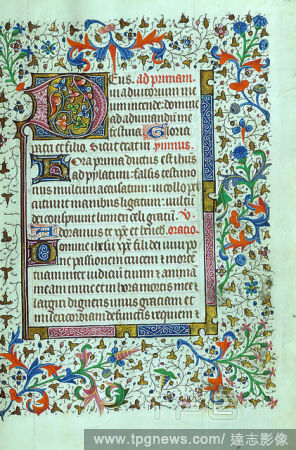 Deus. ad primam
in adiutorium m
intende. domine
ad adiuvandum
festina. Gloria
patri et filio. Sicut erat in ymnus.
Hora prima ductus est ihūs
ad pylatum. falsis testimo
niis multum accusatum. in collo
tutiunt. manibus ligatum. vultum
dei conspuunt lumen celi gratū. V.
Adoramus te xp̄e et bened. oracio
Domine ihū xp̄e fili dei vivi po
ne passionem crucem et mortē
tuam inter iudiciū tuum et animā
meam nunc et in hora mortis mee et
largiri digneris vivis graciam et
misericordiam defunctis requiem et
www.tpgnews.com / 達志影像